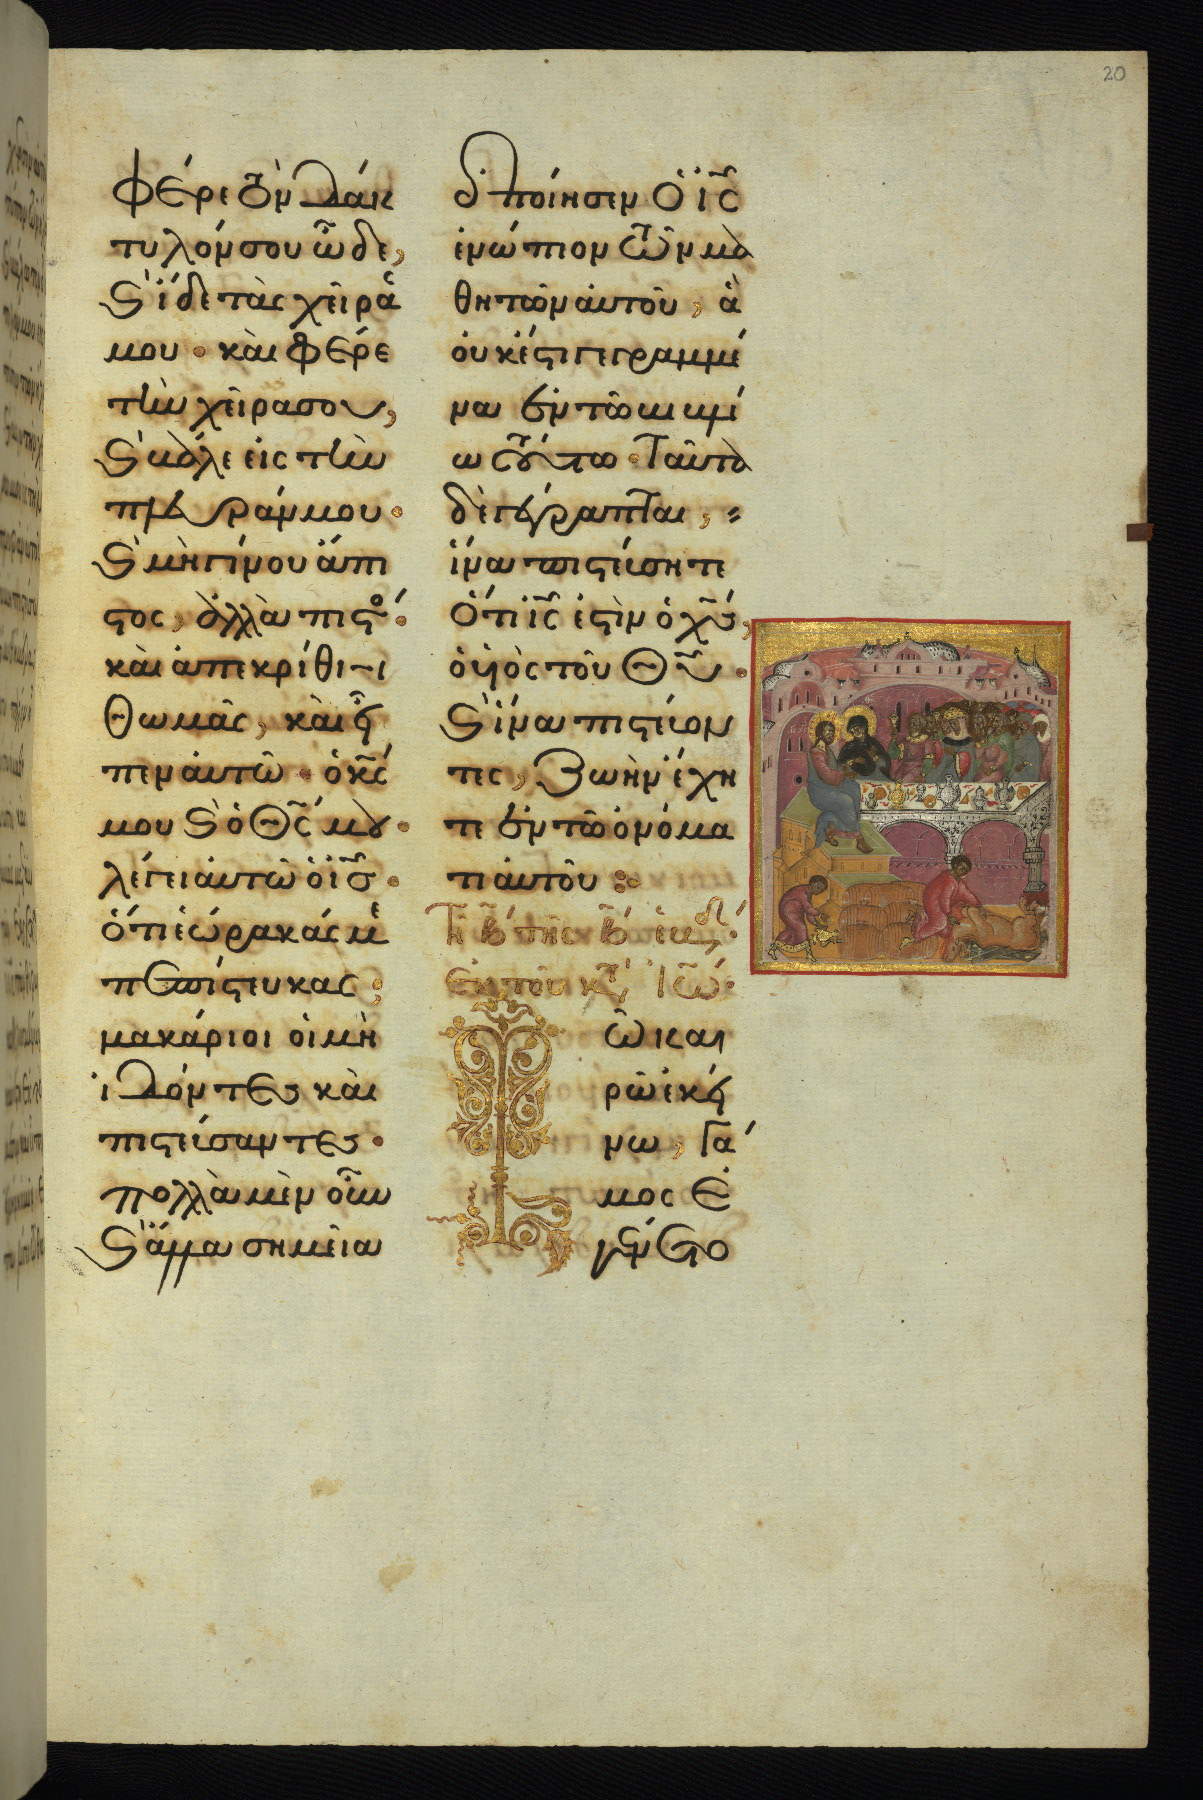 20
φέρε τὸν δάκ
τυλόν σου ὧδε,
ϛ ἴδε τὰς χεῖράς
μου · καὶ φέρε
τὴν χεῖρα σου,
ϛ βάλε εἰς τὴν
πλευράν μου ·
ϛ μὴ γίνου ἄπι
στος, ἀλλὰ πιστός ·
καὶ ἀπεκρίθη
Θωμᾶς, καὶ εἶ
πεν αὐτῶ · ὁ κς
μου ϛ ὁ Θς μου ·
λέγει αὐτῶ ὁ ις ·
ὅτι ἑώρακάς με
πεπίστευκας ;
μακάριοι οἱ μὴ
ἰδόντες καὶ
πιστεύσαντες ·
πολλὰ μὲν οὖν
ϛ ἄλλα σημεῖα
ἐποίησεν ὁ ις
ἐνώπιον τῶν μα
θητῶν αὐτοῦ, ἃ
οὐκ ἔστι γεγραμμέ
να ἐν τῶ βιβλί
ω τούτω · ταῦτα
δὲ γέγραπται,
ἵνα πιστεύσητε
ὅτι ις ἐστὶν ὁ χς,
ὁ υἱὸς τοῦ Θυ ·
ϛ ἵνα πιστεύον
τες, ζωὴν ἔχη
τε ἐν τῶ ὀνόμα
τι αὐτοῦ :
Τῆ β τῆς β ἑβδ ·
ἐκ τοῦ κτ Ἰω ·
Τῶ καὶ
ρῶ ἐκεί
νω, γά
μος ἐ
γένετο